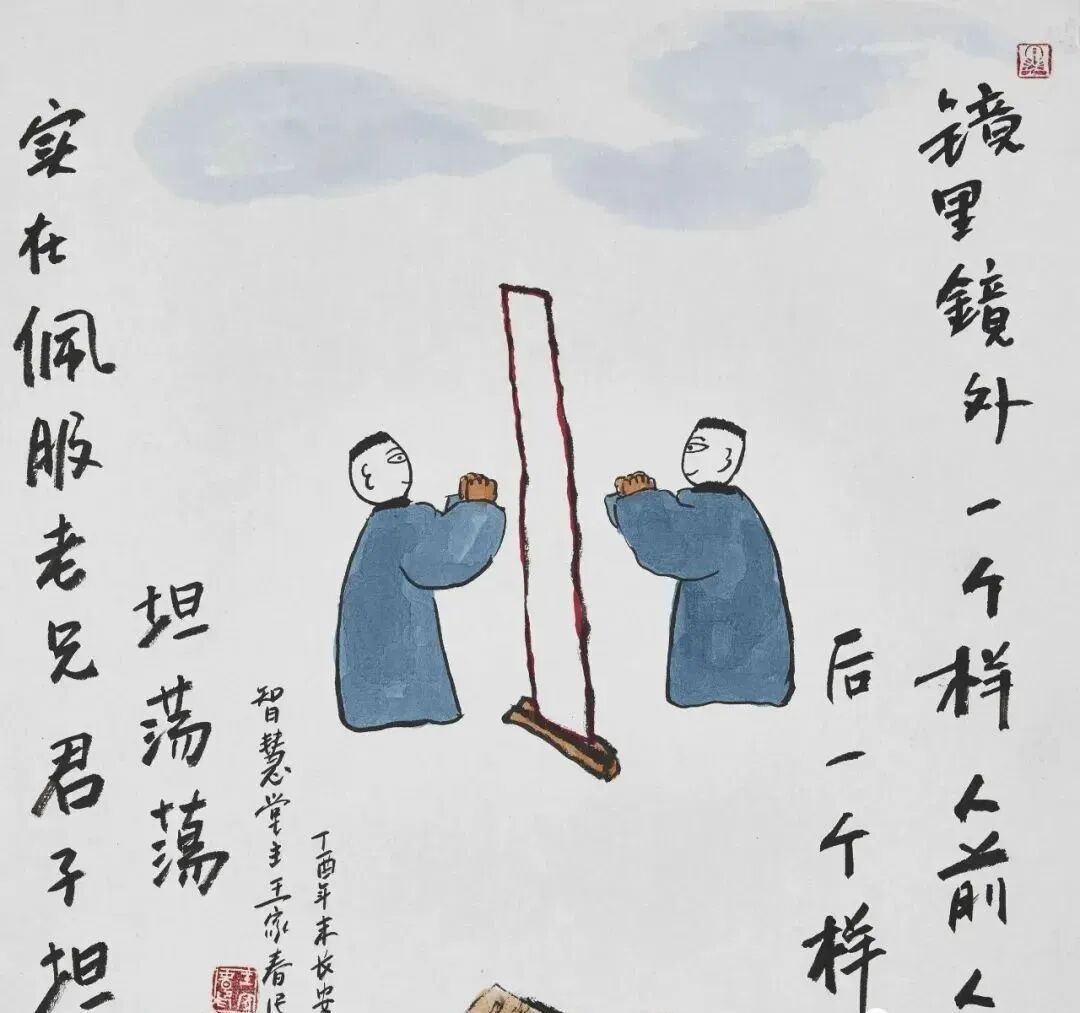 镜里鏡外一个样人前人
后一个样
实在佩服老兄君子坦
坦荡蕩
智慧堂主王家春
丁酉年末长安